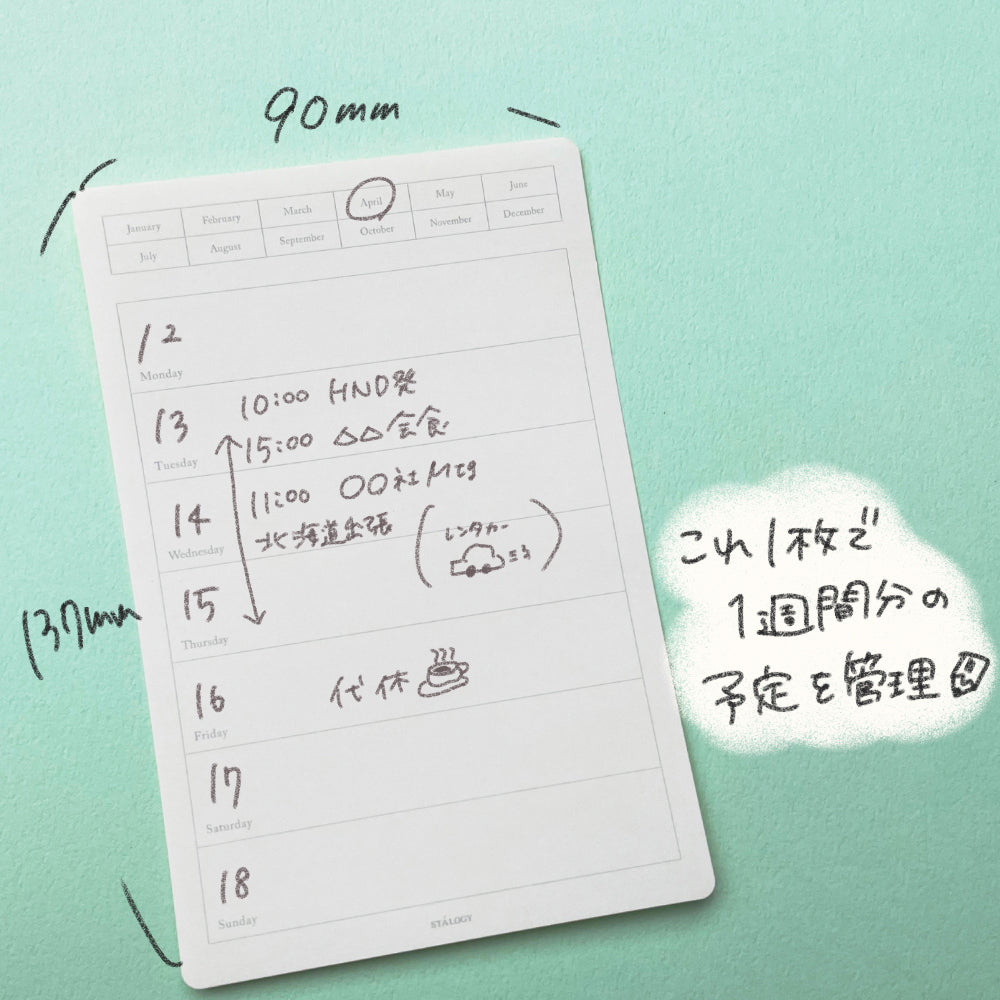 90mm
January February March April May June
July August September October November December
12
Monday
13 10:00 HND発
Tuesday 15:00 △△会食
14 11:00 〇〇社Mtg
Wednesday 北海道出張 (レンタカー)
15
Thursday
16 代休
Friday
17
Saturday
18
Sunday
STÁLOGY
137mm
これ1枚で
1週間分の
予定を管理